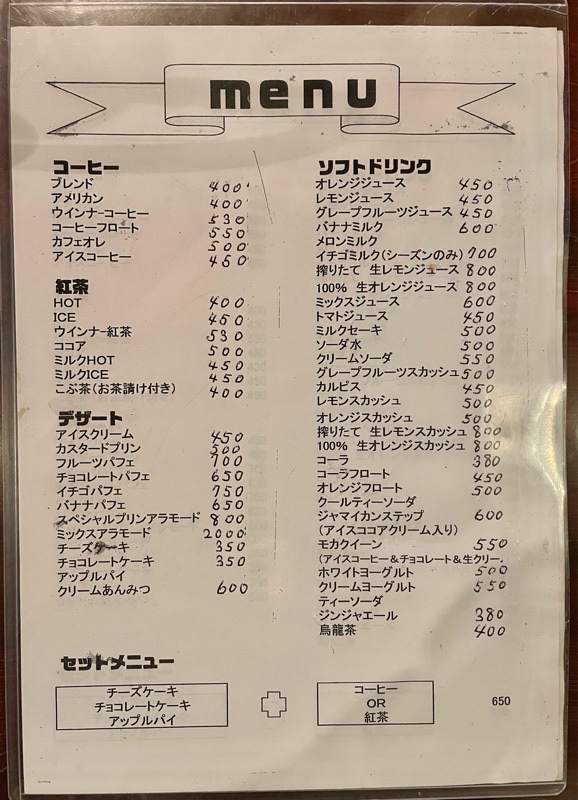 menu
コーヒー
ブレンド 400
アメリカン 400
ウインナ-コーヒー 530
コーヒーフロート 550
カフェオレ 500
アイスコーヒー 450
紅茶
HOT 400
ICE 450
ウインナ-紅茶 530
ココア 500
ミルクHOT 450
ミルクICE 450
こぶ茶(お茶請け付き) 400
デザート
アイスクリーム 450
カスタードプリン 500
フルーツパフェ 700
チョコレートパフェ 650
イチゴパフェ 750
バナナパフェ 650
スペシャルプリンアラモード 800
ミックスアラモード 2000
チーズケーキ 350
チョコレートケーキ 350
アップルパイ
クリームあんみつ 600
ソフトドリンク
オレンジジュース 450
レモンジュース 450
グレープフルーツジュース 450
バナナミルク 600
メロンミルク
イチゴミルク(シーズンのみ) 700
搾りたて 生レモンジュース 800
100% 生オレンジジュース 800
ミックスジュース 600
トマトジュース 450
ミルクセーキ 500
ソーダ水 500
クリームソーダ 550
グレープフルーツスカッシュ 500
カルピス 450
レモンスカッシュ 500
オレンジスカッシュ 500
搾りたて 生レモンスカッシュ 800
100% 生オレンジスカッシュ 800
コーラ 380
コーラフロート 450
オレンジフロート 500
クールティーソーダ
ジャマイカンステップ 600
(アイスココアクリーム入り)
モカクイーン 550
(アイスコーヒー&チョコレート&生クリー.
ホワイトヨーグルト 500
クリームヨーグルト 550
ティーソーダ
ジンジャエール 380
烏龍茶 400
セットメニュー
チーズケーキ
チョコレートケーキ
アップルパイ
コーヒー
OR
紅茶
650